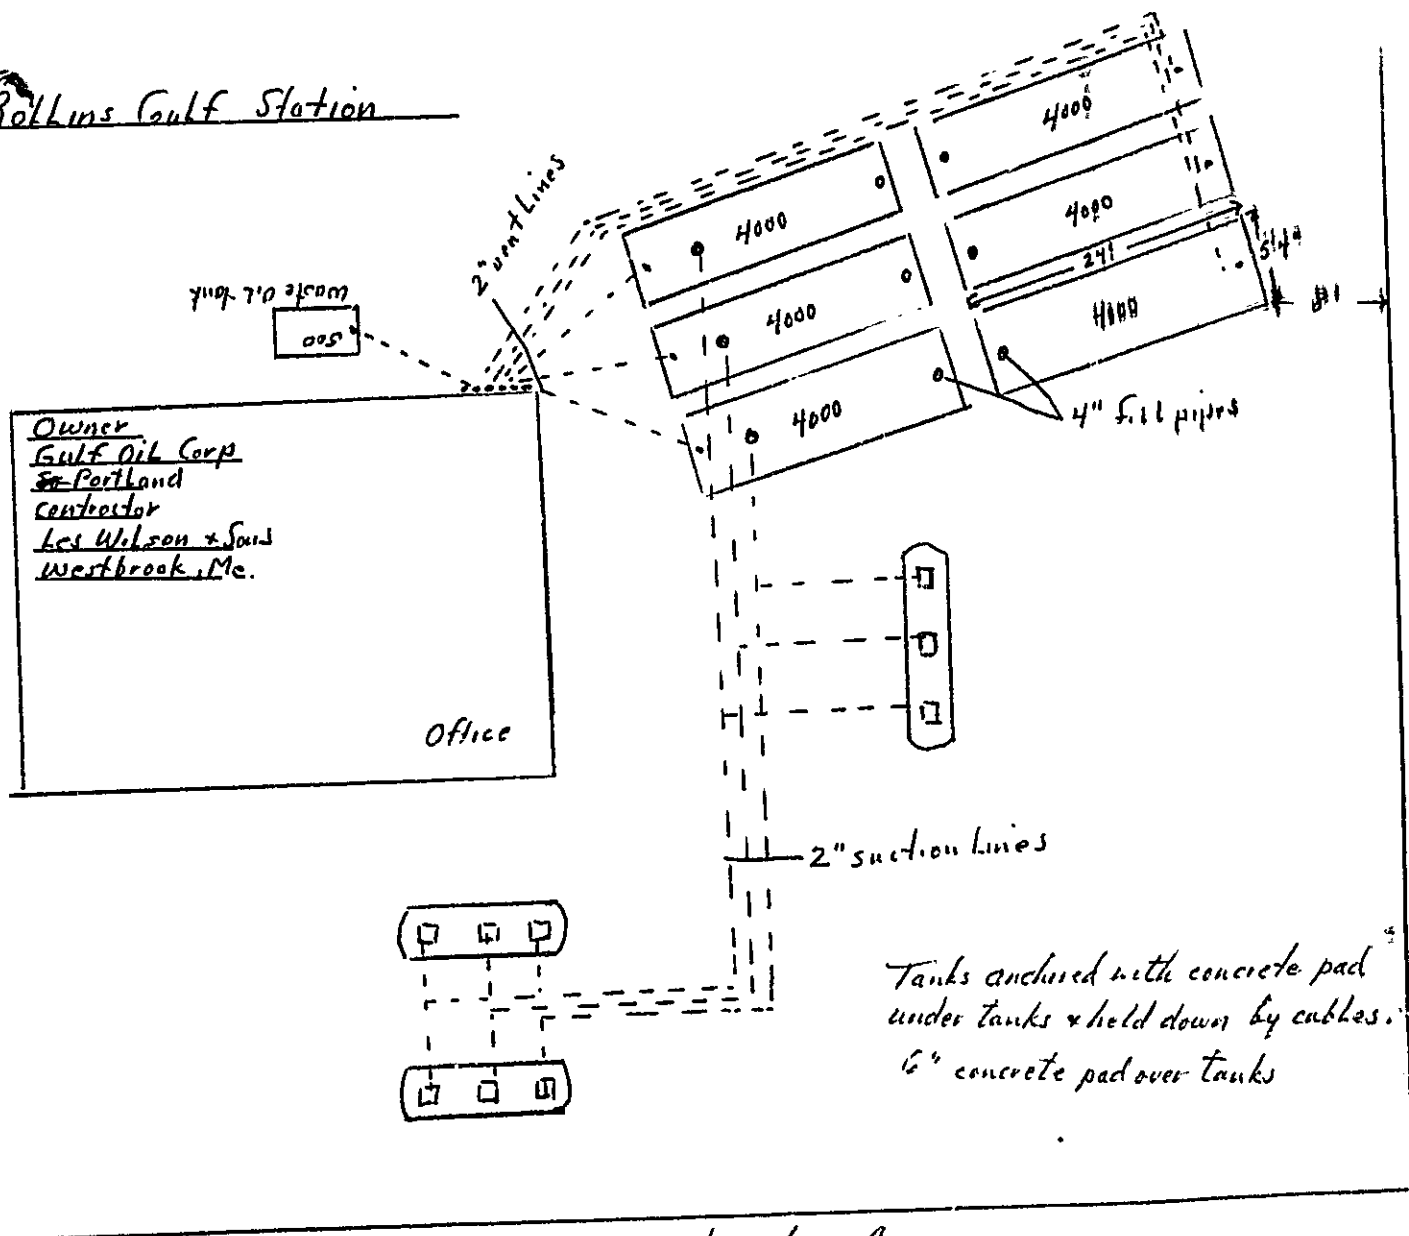 Rollins Gulf Station
2" vent Lines
Waste Oil tank
500
4000
4000
4000
4000
4000
4000
24'
5'4"
4" fill pipes
Owner
Gulf Oil Corp
So Portland
contractor
Les Wilson & Sons
Westbrook, Me.
Office
2" suction Lines
Tanks anchored with concrete pad
under tanks & held down by cables.
6" concrete pad over tanks